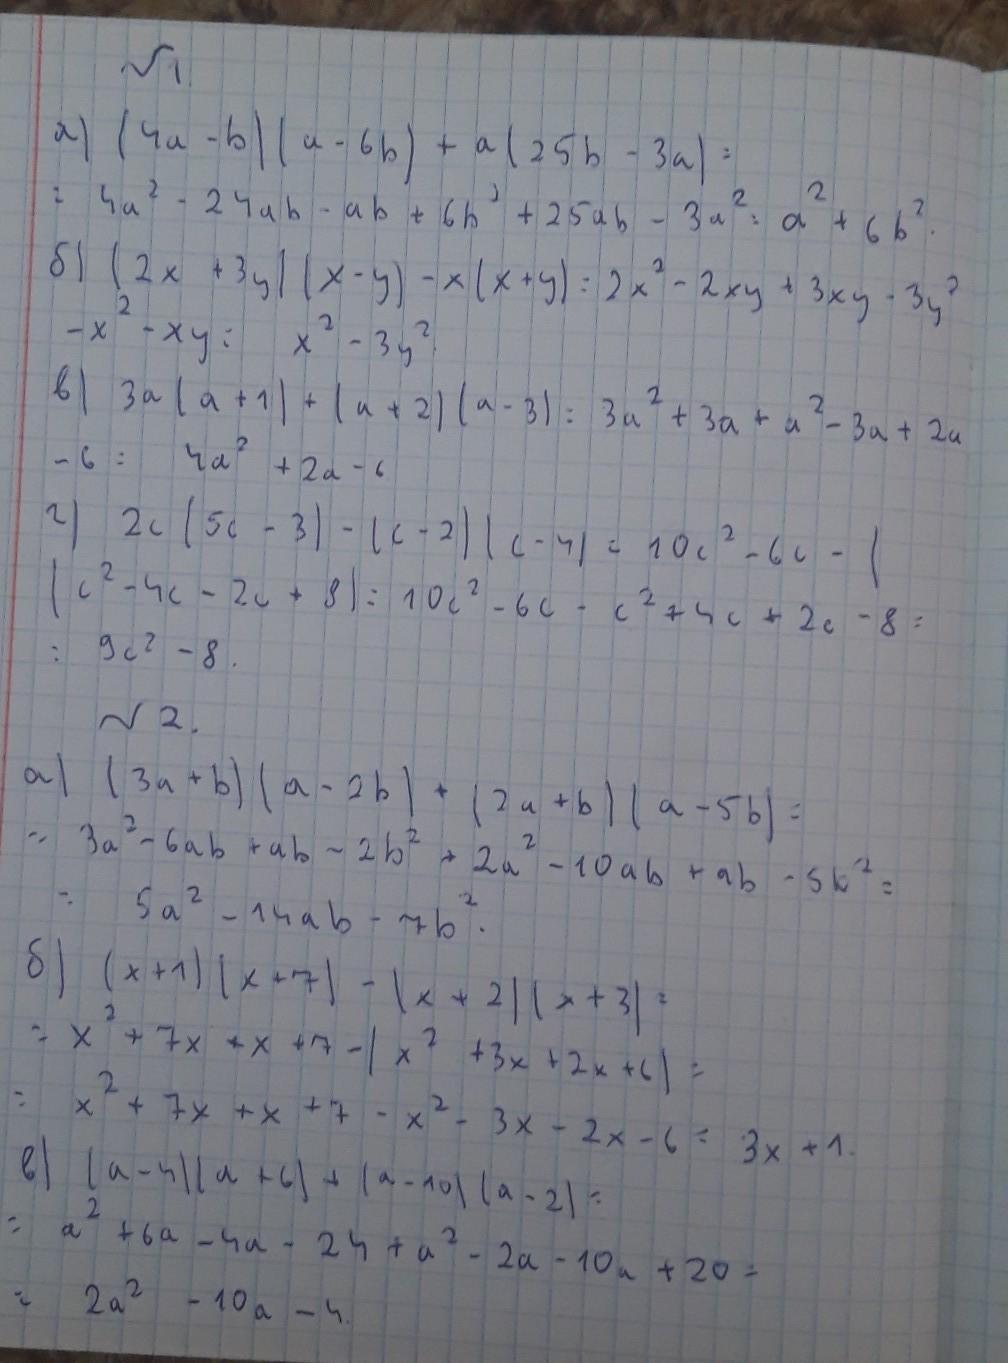 №1
а) (4a - b)(a - 6b) + a(25b - 3a) =
= 4a² - 24ab - ab + 6b² + 25ab - 3a² = a² + 6b².
б) (2x + 3y)(x - y) - x(x + y) = 2x² - 2xy + 3xy - 3y²
- x² - xy = x² - 3y².
в) 3a(a + 1) + (a + 2)(a - 3) = 3a² + 3a + a² - 3a + 2a
- 6 = 4a² + 2a - 6
г) 2c(5c - 3) - (c - 2)(c - 4) = 10c² - 6c - (
(c² - 4c - 2c + 8) = 10c² - 6c - c² + 4c + 2c - 8 =
= 9c² - 8.
№2.
а) (3a + b)(a - 2b) + (2a + b)(a - 5b) =
= 3a² - 6ab + ab - 2b² + 2a² - 10ab + ab - 5b² =
= 5a² - 14ab - 7b².
б) (x + 1)(x + 7) - (x + 2)(x + 3) =
= x² + 7x + x + 7 - (x² + 3x + 2x + 6) =
= x² + 7x + x + 7 - x² - 3x - 2x - 6 = 3x + 1.
в) (a - 4)(a + 6) + (a - 10)(a - 2) =
= a² + 6a - 4a - 24 + a² - 2a - 10a + 20 =
= 2a² - 10a - 4.